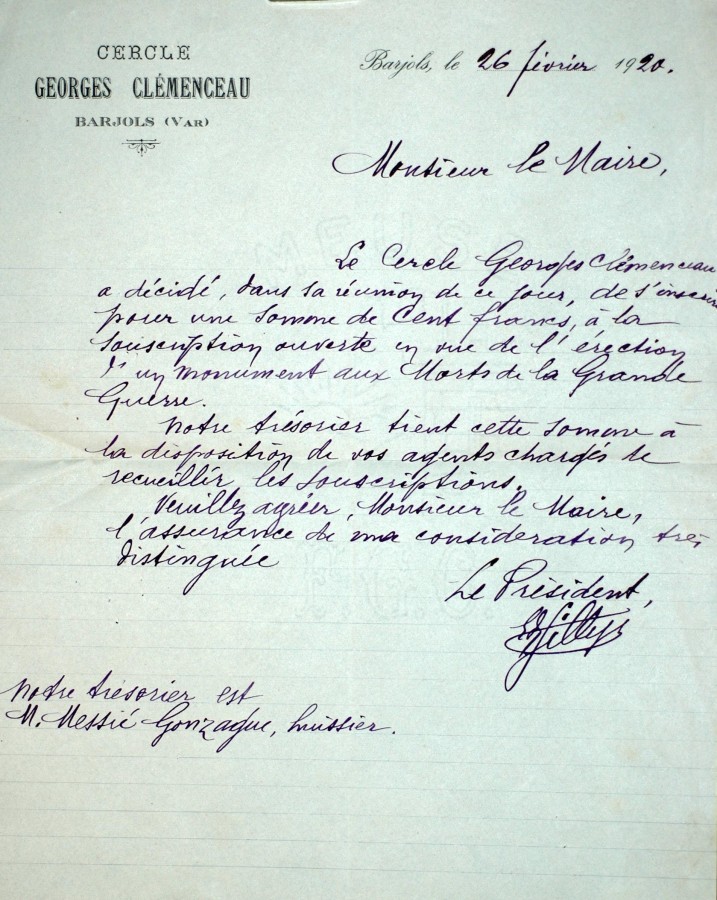 CERCLE
GEORGES CLÉMENCEAU
BARJOLS (VAR)
Barjols, le 26 février 1920.
Monsieur le Maire,
Le Cercle Georges Clémenceau
a décidé, dans sa réunion de ce jour, de s'inscrire
pour une somme de Cent francs, à la
souscription ouverte en vue de l'érection
d'un monument aux Morts de la Grande
Guerre.
Notre trésorier tient cette somme à
la disposition de vos agents chargés de
recueillir les souscriptions.
Veuillez agréer, Monsieur le Maire,
l'assurance de ma consideration très
distinguée
Le Président,
Notre trésorier est
M. Messié Gonzague, huissier.